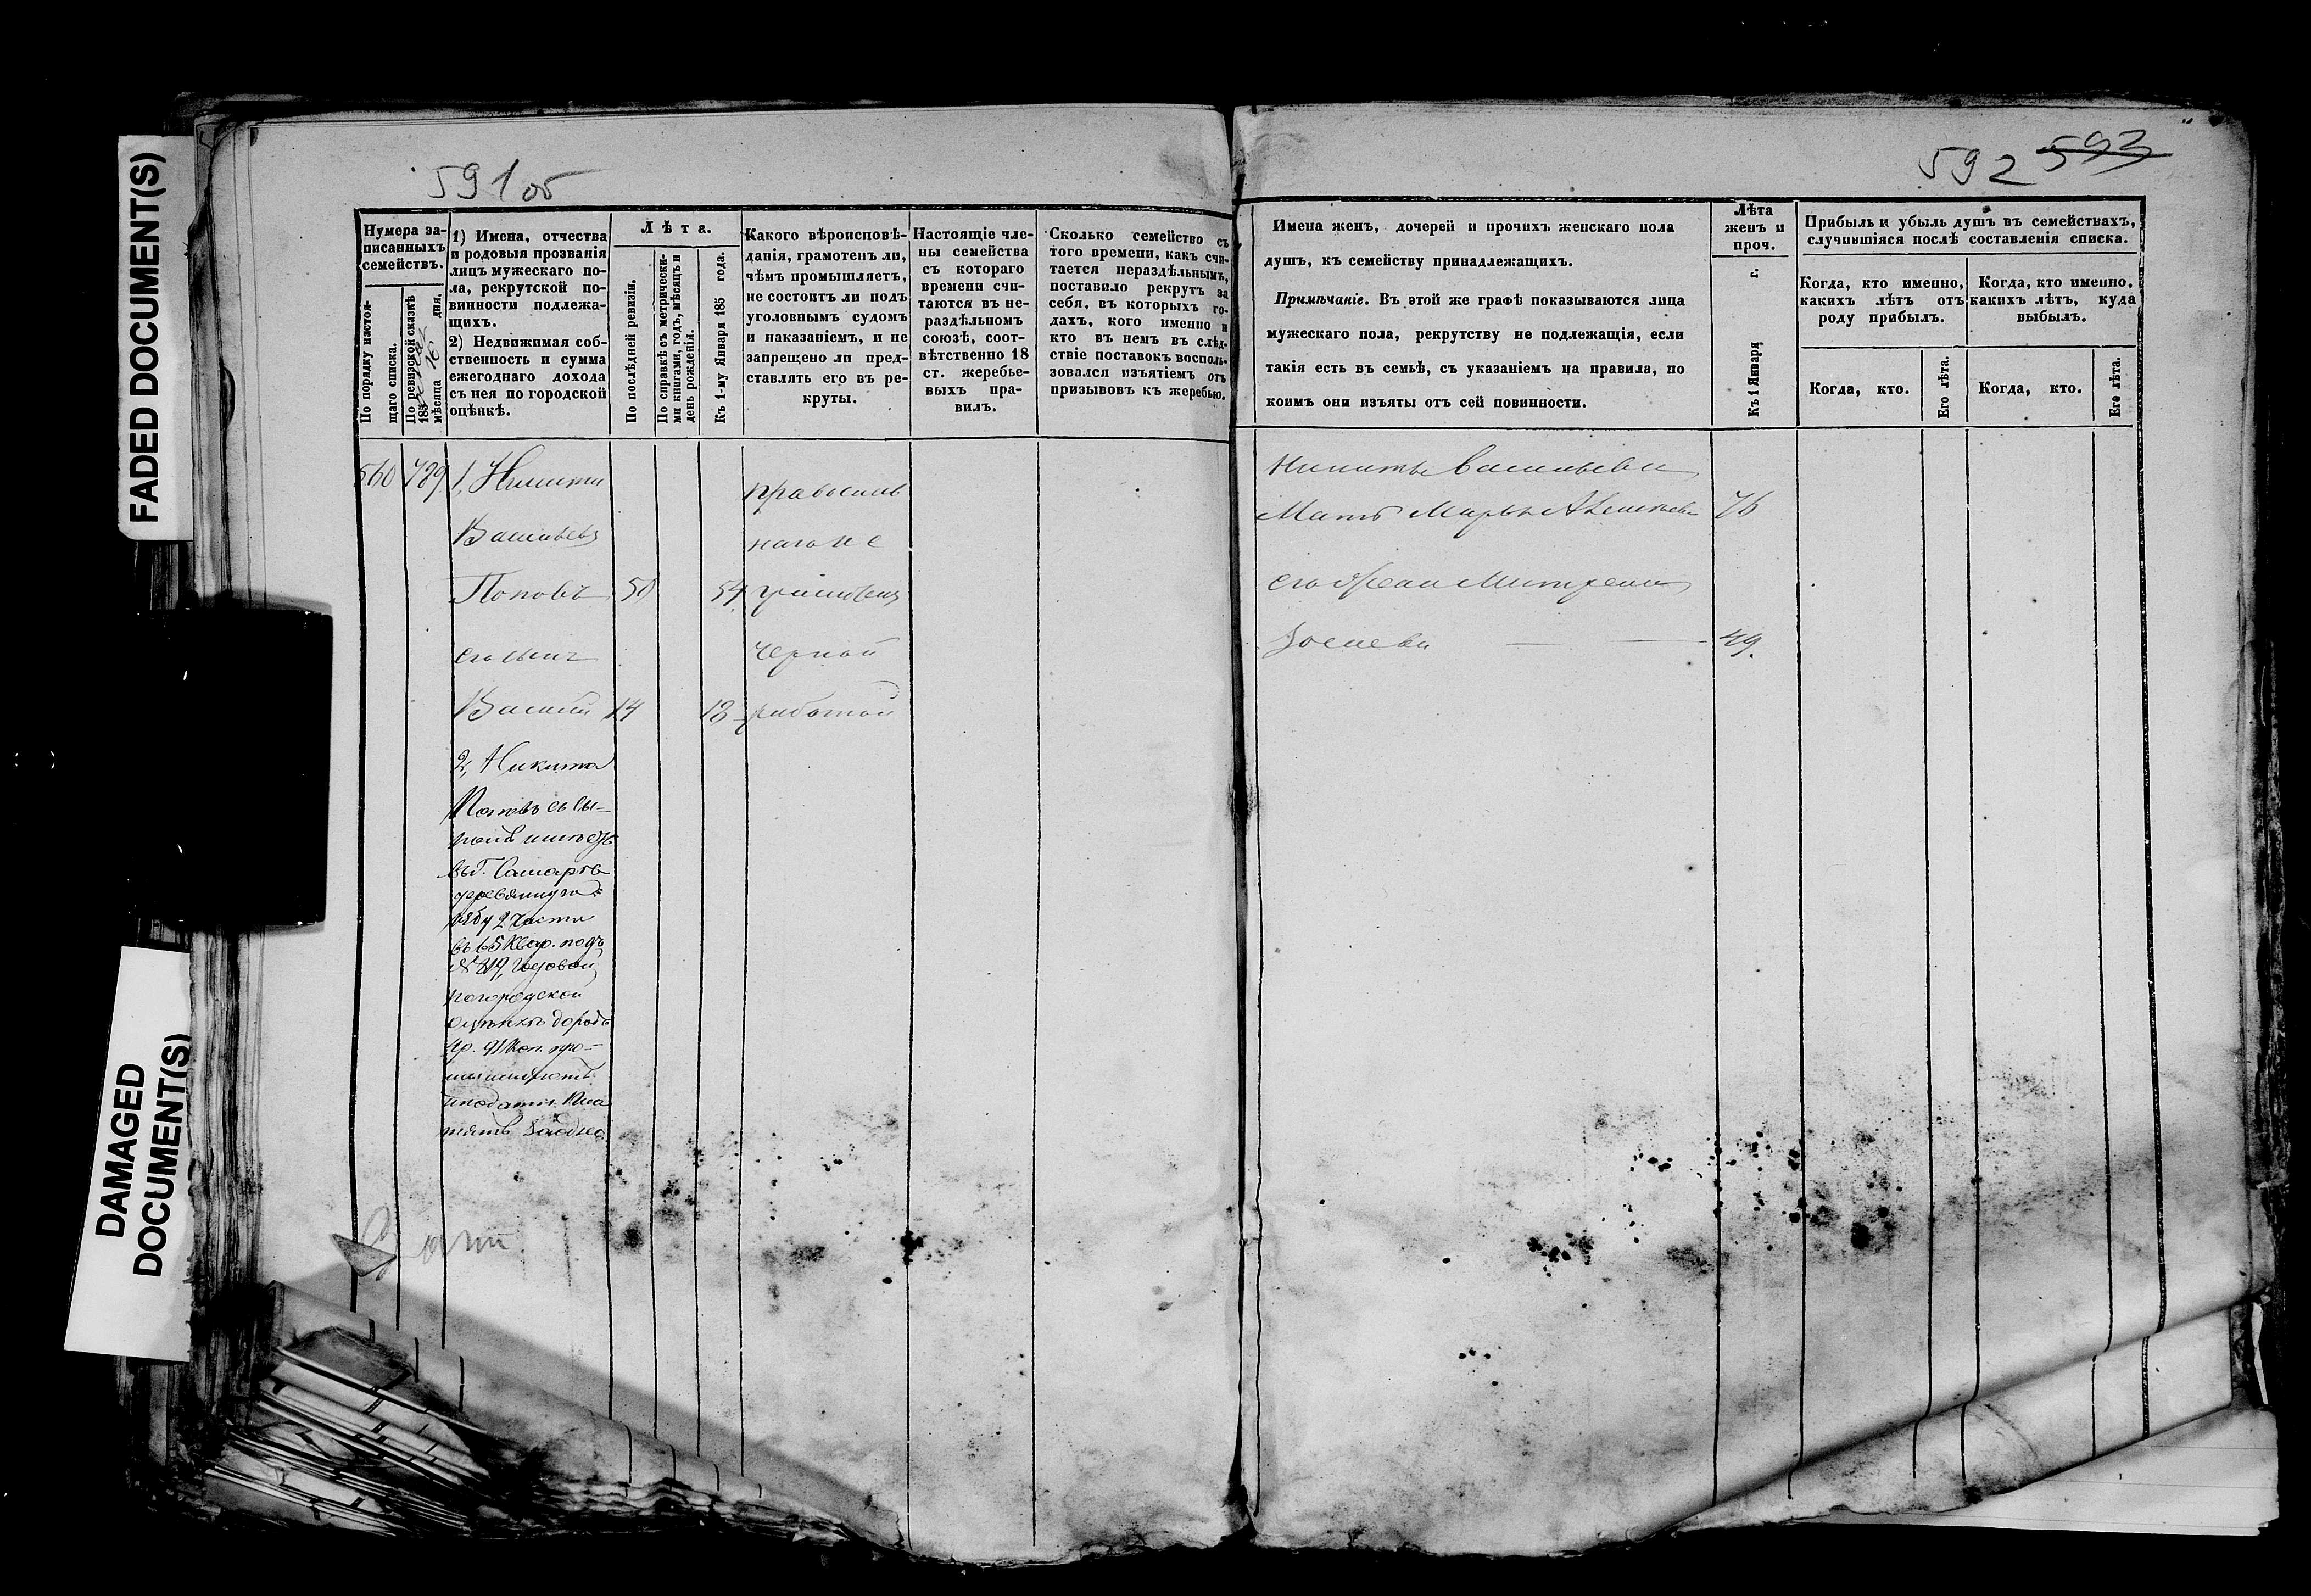 FADED DOCUMENT(S)
DAMAGED
DOCUMENT(S)
591 об
Нумера за-
писанныхъ
семействъ.
По порядку настоя-
щаго списка.
По ревизской сказкѣ
185
мѣсяца дня.
1) Имена, отчества
и родовыя прозванія
лицъ мужескаго по-
ла, рекрутской по-
винности подлежа-
щихъ.
2) Недвижимая соб-
ственность и сумма
ежегоднаго дохода
съ нея по городской
оцѣнкѣ.
Лѣта.
По послѣдней ревизіи.
По справкѣ съ метрически-
ми книгами, годъ, мѣсяцъ и
день рожденія.
Къ 1-му Января 185 года.
Какого вѣроисповѣ-
данія, грамотенъ ли,
чѣмъ промышляетъ,
не состоитъ ли подъ
уголовнымъ судомъ
и наказаніемъ, и не
запрещено ли пред-
ставлять его въ ре-
круты.
Настоящіе чле-
ны семейства
съ котораго
времени счи-
таются въ не-
раздѣльномъ
союзѣ, соот-
вѣтственно 18
ст. жеребье-
выхъ пра-
вилъ.
Сколько семейство съ
того времени, какъ счи-
тается нераздѣльнымъ,
поставило рекрутъ за
себя, въ которыхъ го-
дахъ, кого именно и
кто въ немъ въ слѣд-
ствіе поставокъ восполь-
зовался изъятіемъ отъ
призывовъ къ жеребью.
560 789 1, Никита
Васильевъ
Поповъ 50 54
его сынъ
Василий 14 18
православ
наго не
грамотенъ
черной
работой
2, Никита
Поповъ съ сы-
номъ имѣетъ
въ г. Самарѣ
деревянную
избу 2 части
въ 65 квар. подъ
№ 219, годовой
по городской
оцѣнкѣ доходъ
р. 91 коп. про-
и подати пла
тятъ
592 593
Имена женъ, дочерей и прочихъ женскаго пола
душъ, къ семейству принадлежащихъ.
Примѣчаніе. Въ этой же графѣ показываются лица
мужескаго пола, рекрутству не подлежащія, если
такія есть въ семьѣ, съ указаніемъ на правила, по
коимъ они изъяты отъ сей повинности.
Лѣта
женъ и
проч.
Къ 1 Января г.
Прибыль и убыль душъ въ семействахъ,
случившіяся послѣ составленія списка.
Когда, кто именно,
какихъ лѣтъ отъ
роду прибылъ.
Когда, кто именно,
какихъ лѣтъ, куда
выбылъ.
Когда, кто.
Его лѣта.
Когда, кто.
Его лѣта.
Никиты Васильева
Мать Марья 76
его жена
49.